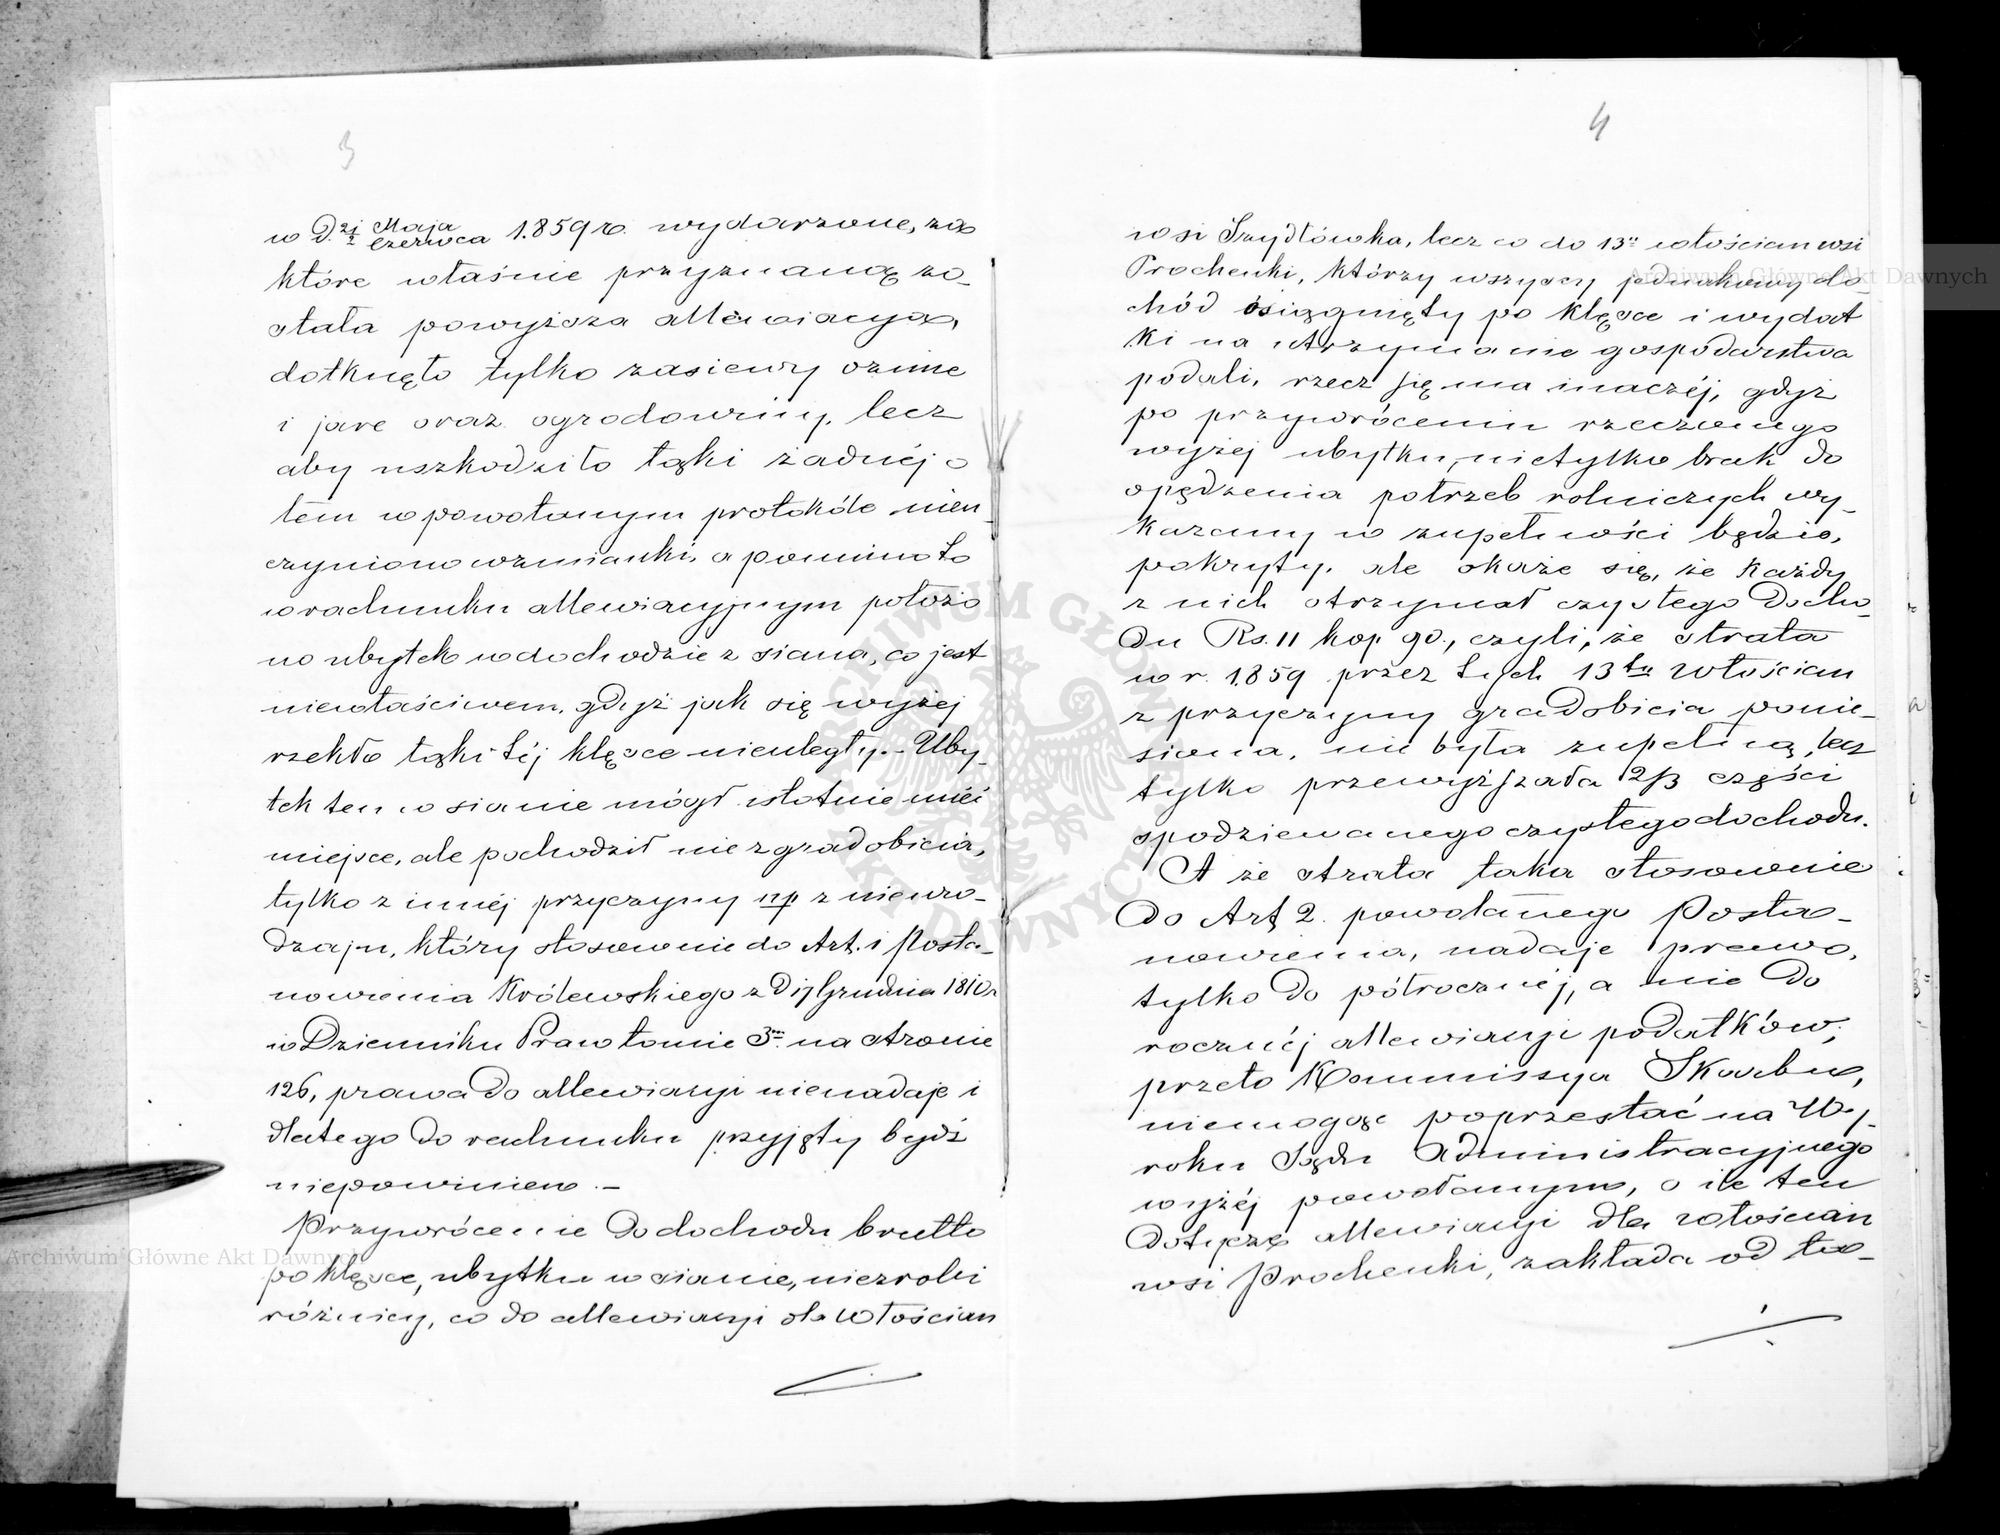 3
w D. 21/2 Maja/Czerwca 1.859 r. wydarzone, za
które właśnie przyznaną zo-
stała powyższa allewiacya,
dotknęło tylko zasiewy ozime
i jare oraz ogrodowiny, lecz
aby uszkodziło łąki żadnéj o
tem w powołanym protokóle nieu-
czyniono wzmianki, a pomimo to
w rachunku allewiacyjnym położo
no ubytek w dochodzie z siana, co jest
niewłaściwem, gdyż jak się wyżej
rzekło łąki téj klęsce nieuległy. – Uby-
tek ten w sianie mógł istotnie mieć
miejsce, ale pochodził nie z gradobicia,
tylko z innéj przyczyny np z nieuro-
dzaju, który stosownie do Art. 1 Posta-
nowienia Królewskiego z D 17 Grudnia 1810 r
w Dzienniku Praw tomie 3m. na stronie
126, prawa do allewiacyi nienadaje i
dlatego do rachunku przyjęty bydź
niepowinien. –
Przywrócenie do dochodu brutto
po klęsce, ubytku w sianie, niezrobi
różnicy, co do allewiacyi dla Włościan
4
wsi Szydłówka, lecz co do 13u włościan wsi
Prochenki, którzy wszyscy jednakowy do-
chód osiągnięty po klęsce i wydat
ki na utrzymanie gospodarstwa
podali, rzecz się ma inaczéj, gdyż
po przywróceniu rzeczonego
wyżej ubytku, nietylko brak do
opędzenia potrzeb rolniczych wy-
kazany w zupełności będzie,
pokryty, ale okaże się, że każdy
z nich otrzymał czystego docho-
du Rs. 11 kop 90., czyli, że strata
w r. 1.859 przez tych 13tu Włościan
z przyczyny gradobicia ponie-
siona, nie była zupełną, lecz
tylko przewyższała 2/3 części
spodziewanego czystego dochodu.
A że strata taka stosownie
do Art 2. powołanego Posta-
nowienia, nadaje prawo,
tylko do półrocznéj, a nie do
rocznéj allewiacyi podatków;
przeto Kommissya Skarbu,
niemogąc poprzestać na Wy-
roku Sądu Administracyjnego
wyżéj powołanym, o ile ten
dotyczę allewiacyi dla włościan
wsi Prochenki, zakłada od ta-
Archiwum Główne Akt Dawnych
Archiwum Główne Akt Dawnych
ARCHIWUM GŁÓWNE AKT DAWNYCH